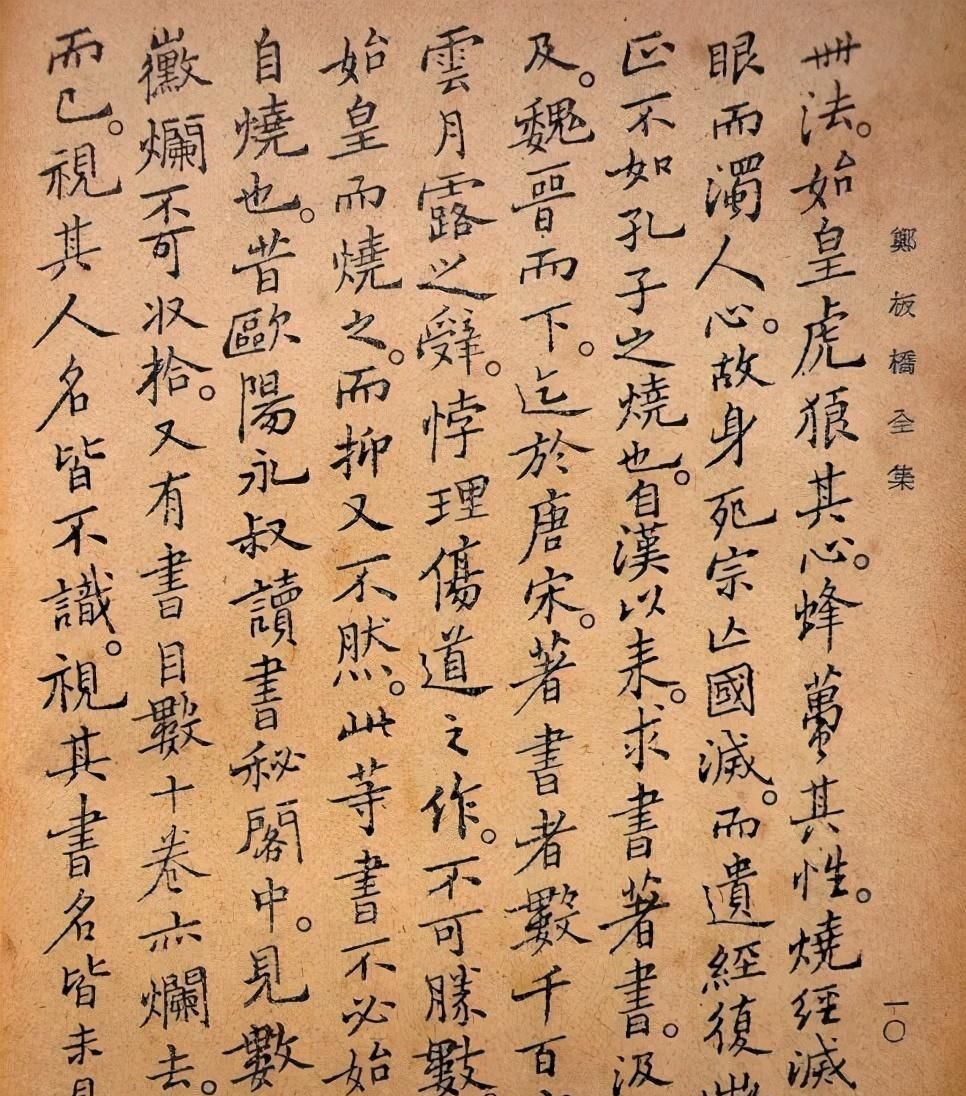 鄭板橋全集
一〇
卌法。始皇虎狼其心。蜂蠆其性。燒經滅
眼而濁人心。故身死宗亡國滅。而遺經復
正不如孔子之燒也。自漢以来。求書著書。汲
及。魏晉而下。迄於唐宋。著書者數千百
雲月露之辭。悖理傷道之作。不可勝數。
始皇而燒之。而抑又不然。此等書不必始
自燒也。昔歐陽永叔讀書秘閣中。見數
黴爛不可収拾。又有書目數十卷亦爛去。
而已。視其人名皆不識。視其書名皆未見